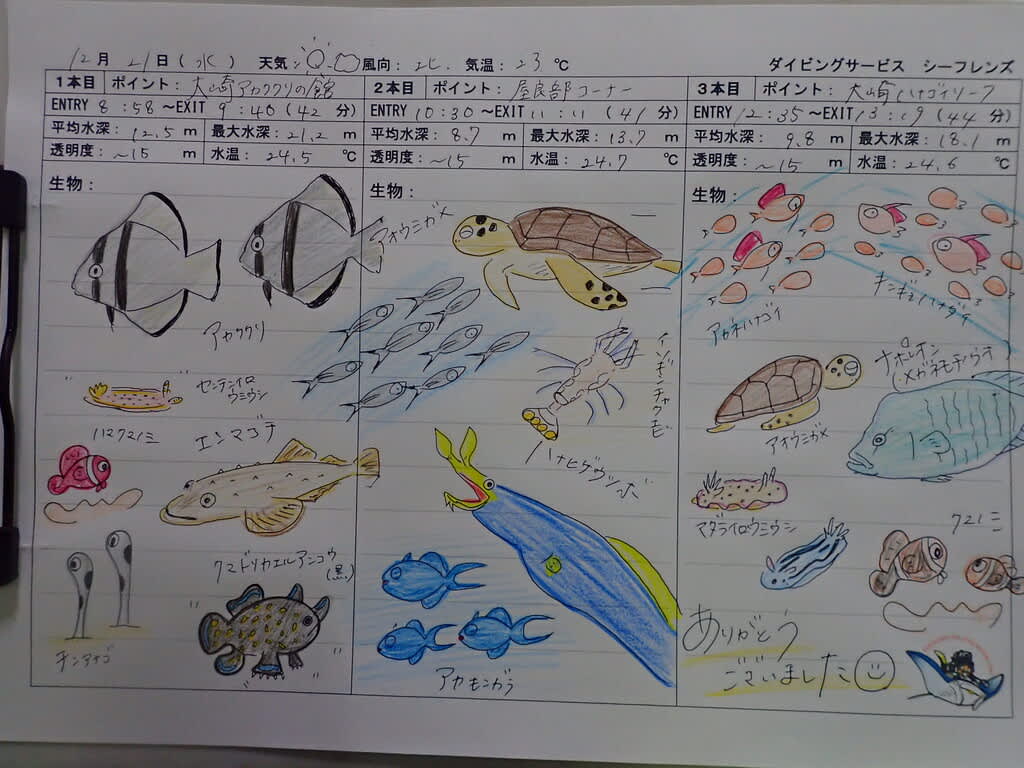 12月 21日(水) 天気: 風向: 北 気温: 23 ℃
ダイビングサービス シーフレンズ
1本目 ポイント: 大崎アカククリの館
ENTRY 8:58 ～EXIT 9:40 (42 分)
平均水深: 12.5 m 最大水深: 21.2 m
透明度: ~15 m 水温: 24.5 ℃
生物:
アカククリ
センテンイロ
ウミウシ
ハマクマノミ
エンマゴチ
クマドリカエルアンコウ
(黒)
チンアナゴ
2本目 ポイント: 屋良部コーナー
ENTRY 10:30 ～EXIT 11:11 (41 分)
平均水深: 8.7 m 最大水深: 13.7 m
透明度: ~15 m 水温: 24.7 ℃
生物:
アオウミガメ
イソギンチャクモエビ
ハナヒゲウツボ
アカモンガラ
3本目 ポイント: 大崎ハナゴイリーフ
ENTRY 12:35 ～EXIT 13:19 (44 分)
平均水深: 9.8 m 最大水深: 18.1 m
透明度: ~15 m 水温: 24.6 ℃
生物:
アカネハナゴイ
キンギョハナダイ
アオウミガメ
ナポレオン
(メガネモチノウオ
マダライロウミウシ
クマノミ
ありがとう
ございました